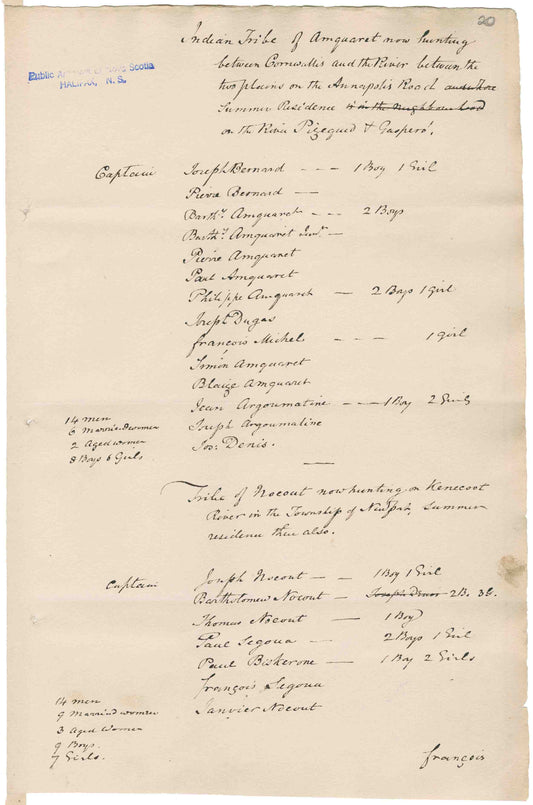 20
Public Archives of Nova Scotia
HALIFAX, N. S.
Indian Tribe of Amquaret now hunting
between Cornwallis and the River between the
two plains on the Annapolis Road and there
Summer Residence is in the neighbourhood
on the River Pizequid & Gasperó.
Captain Joseph Bernard - - - 1 Boy 1 Girl
Pierre Bernard —
Barthy. Amquaret - - - 2 Boys
Barthy. Amquaret Junr. —
Pierre Amquaret
Paul Amquaret
Philippe Amquaret — 2 Boys 1 Girl
Joseph Dugas
françois Michel - - - 1 girl
Simón Amquaret
Blaize Amquaret
Jean Argoumatine - - - 1 Boy 2 Girls
Joseph Argoumatine
Jos: Denis.
14 men
6 Married women
2 Aged women
8 Boys 6 Girls
Tribe of Nocout now hunting on Kenecoot
River in the Township of Newport, Summer
residence there also.
Captain Joseph Nocout — — 1 Boy 1 Girl
Bartholomew Nocout — 2 B. 3 G.
Thomas Nocout — 1 Boy
Paul Segoua — 2 Boys 1 Girl
Paul Baskerone — 1 Boy 2 Girls
françois Segoua
Janvier Nocout
14 men
9 Married women
3 Aged Women
9 Boys.
7 Girls.
françois